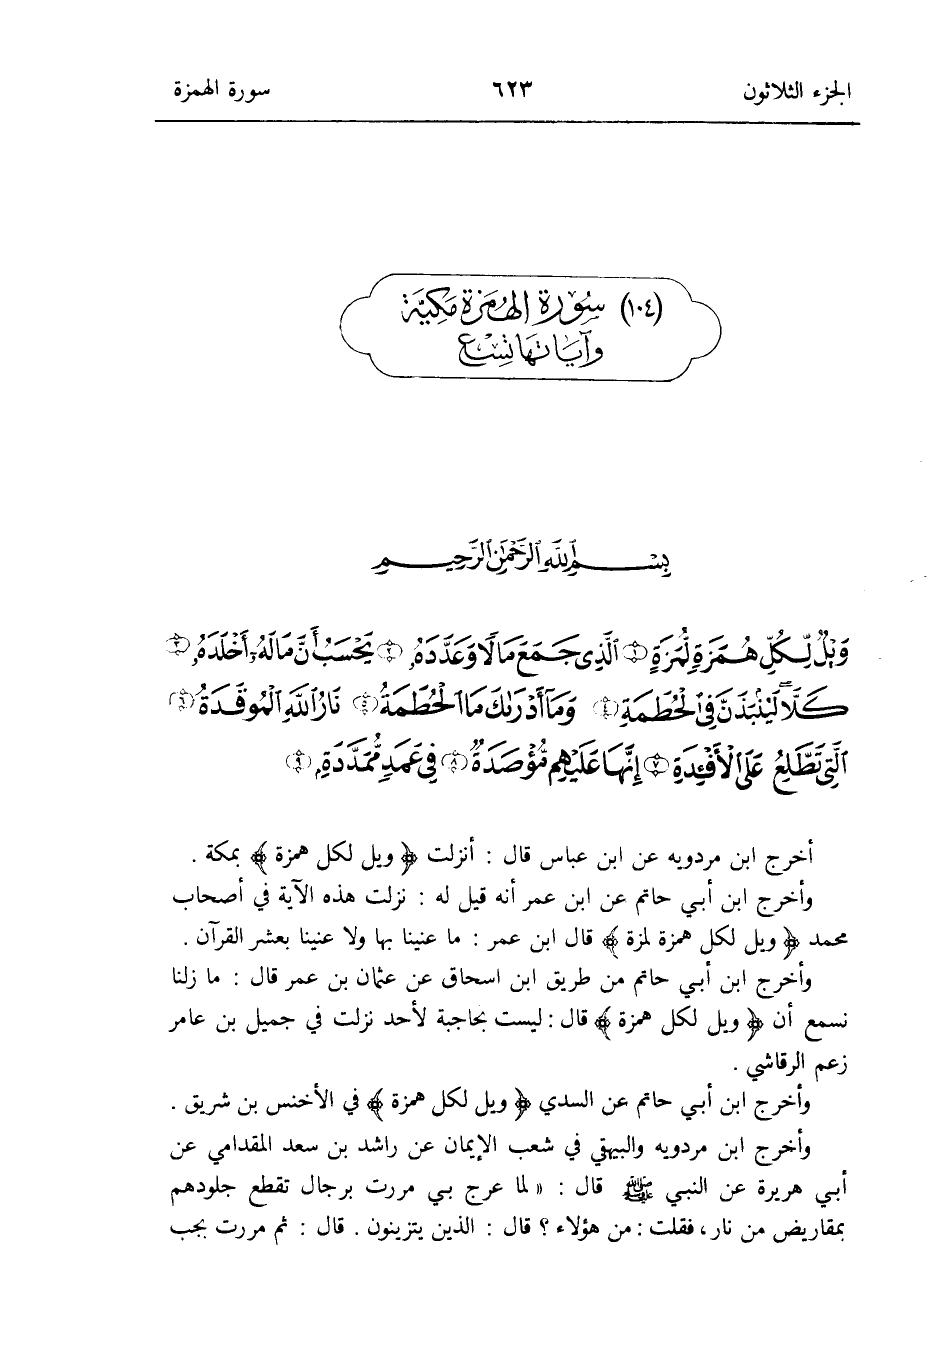 الجزء الثلاثون ٦٢٣ سورة الهمزة
(١٠٤) سورة الهمزة مكية
وآياتها تسع
بِسْمِ ٱللَّهِ ٱلرَّحْمَٰنِ ٱلرَّحِيمِ
وَيْلٌ لِّكُلِّ هُمَزَةٍ لُّمَزَةٍ ﴿١﴾ ٱلَّذِى جَمَعَ مَالًا وَعَدَّدَهُۥ ﴿٢﴾ يَحْسَبُ أَنَّ مَالَهُۥٓ أَخْلَدَهُۥ ﴿٣﴾
كَلَّا ۖ لَيُنۢبَذَنَّ فِى ٱلْحُطَمَةِ ﴿٤﴾ وَمَآ أَدْرَىٰكَ مَا ٱلْحُطَمَةُ ﴿٥﴾ نَارُ ٱللَّهِ ٱلْمُوقَدَةُ ﴿٦﴾
ٱلَّتِى تَطَّلِعُ عَلَى ٱلْأَفْـِٔدَةِ ﴿٧﴾ إِنَّهَا عَلَيْهِم مُّؤْصَدَةٌ ﴿٨﴾ فِى عَمَدٍ مُّمَدَّدَةٍۭ ﴿٩﴾
أخرج ابن مردويه عن ابن عباس قال : أنزلت ﴿ ويل لكل همزة ﴾ بمكة .
وأخرج ابن أبي حاتم عن ابن عمر أنه قيل له : نزلت هذه الآية في أصحاب
محمد ﴿ ويل لكل همزة لمزة ﴾ قال ابن عمر : ما عنينا بها ولا عنينا بعشر القرآن .
وأخرج ابن أبي حاتم من طريق ابن اسحاق عن عثمان بن عمر قال : ما زلنا
نسمع أن ﴿ ويل لكل همزة ﴾ قال : ليست بحاجبة لأحد نزلت في جميل بن عامر
زعم الرقاشي .
وأخرج ابن أبي حاتم عن السدي ﴿ ويل لكل همزة ﴾ في الأخنس بن شريق .
وأخرج ابن مردويه والبيهقي في شعب الإيمان عن راشد بن سعد المقدامي عن
أبي هريرة عن النبي ﷺ قال : « لما عرج بي مررت برجال تقطع جلودهم
بمقاريض من نار ، فقلت : من هؤلاء ؟ قال : الذين يتزينون . قال : ثم مررت بجب